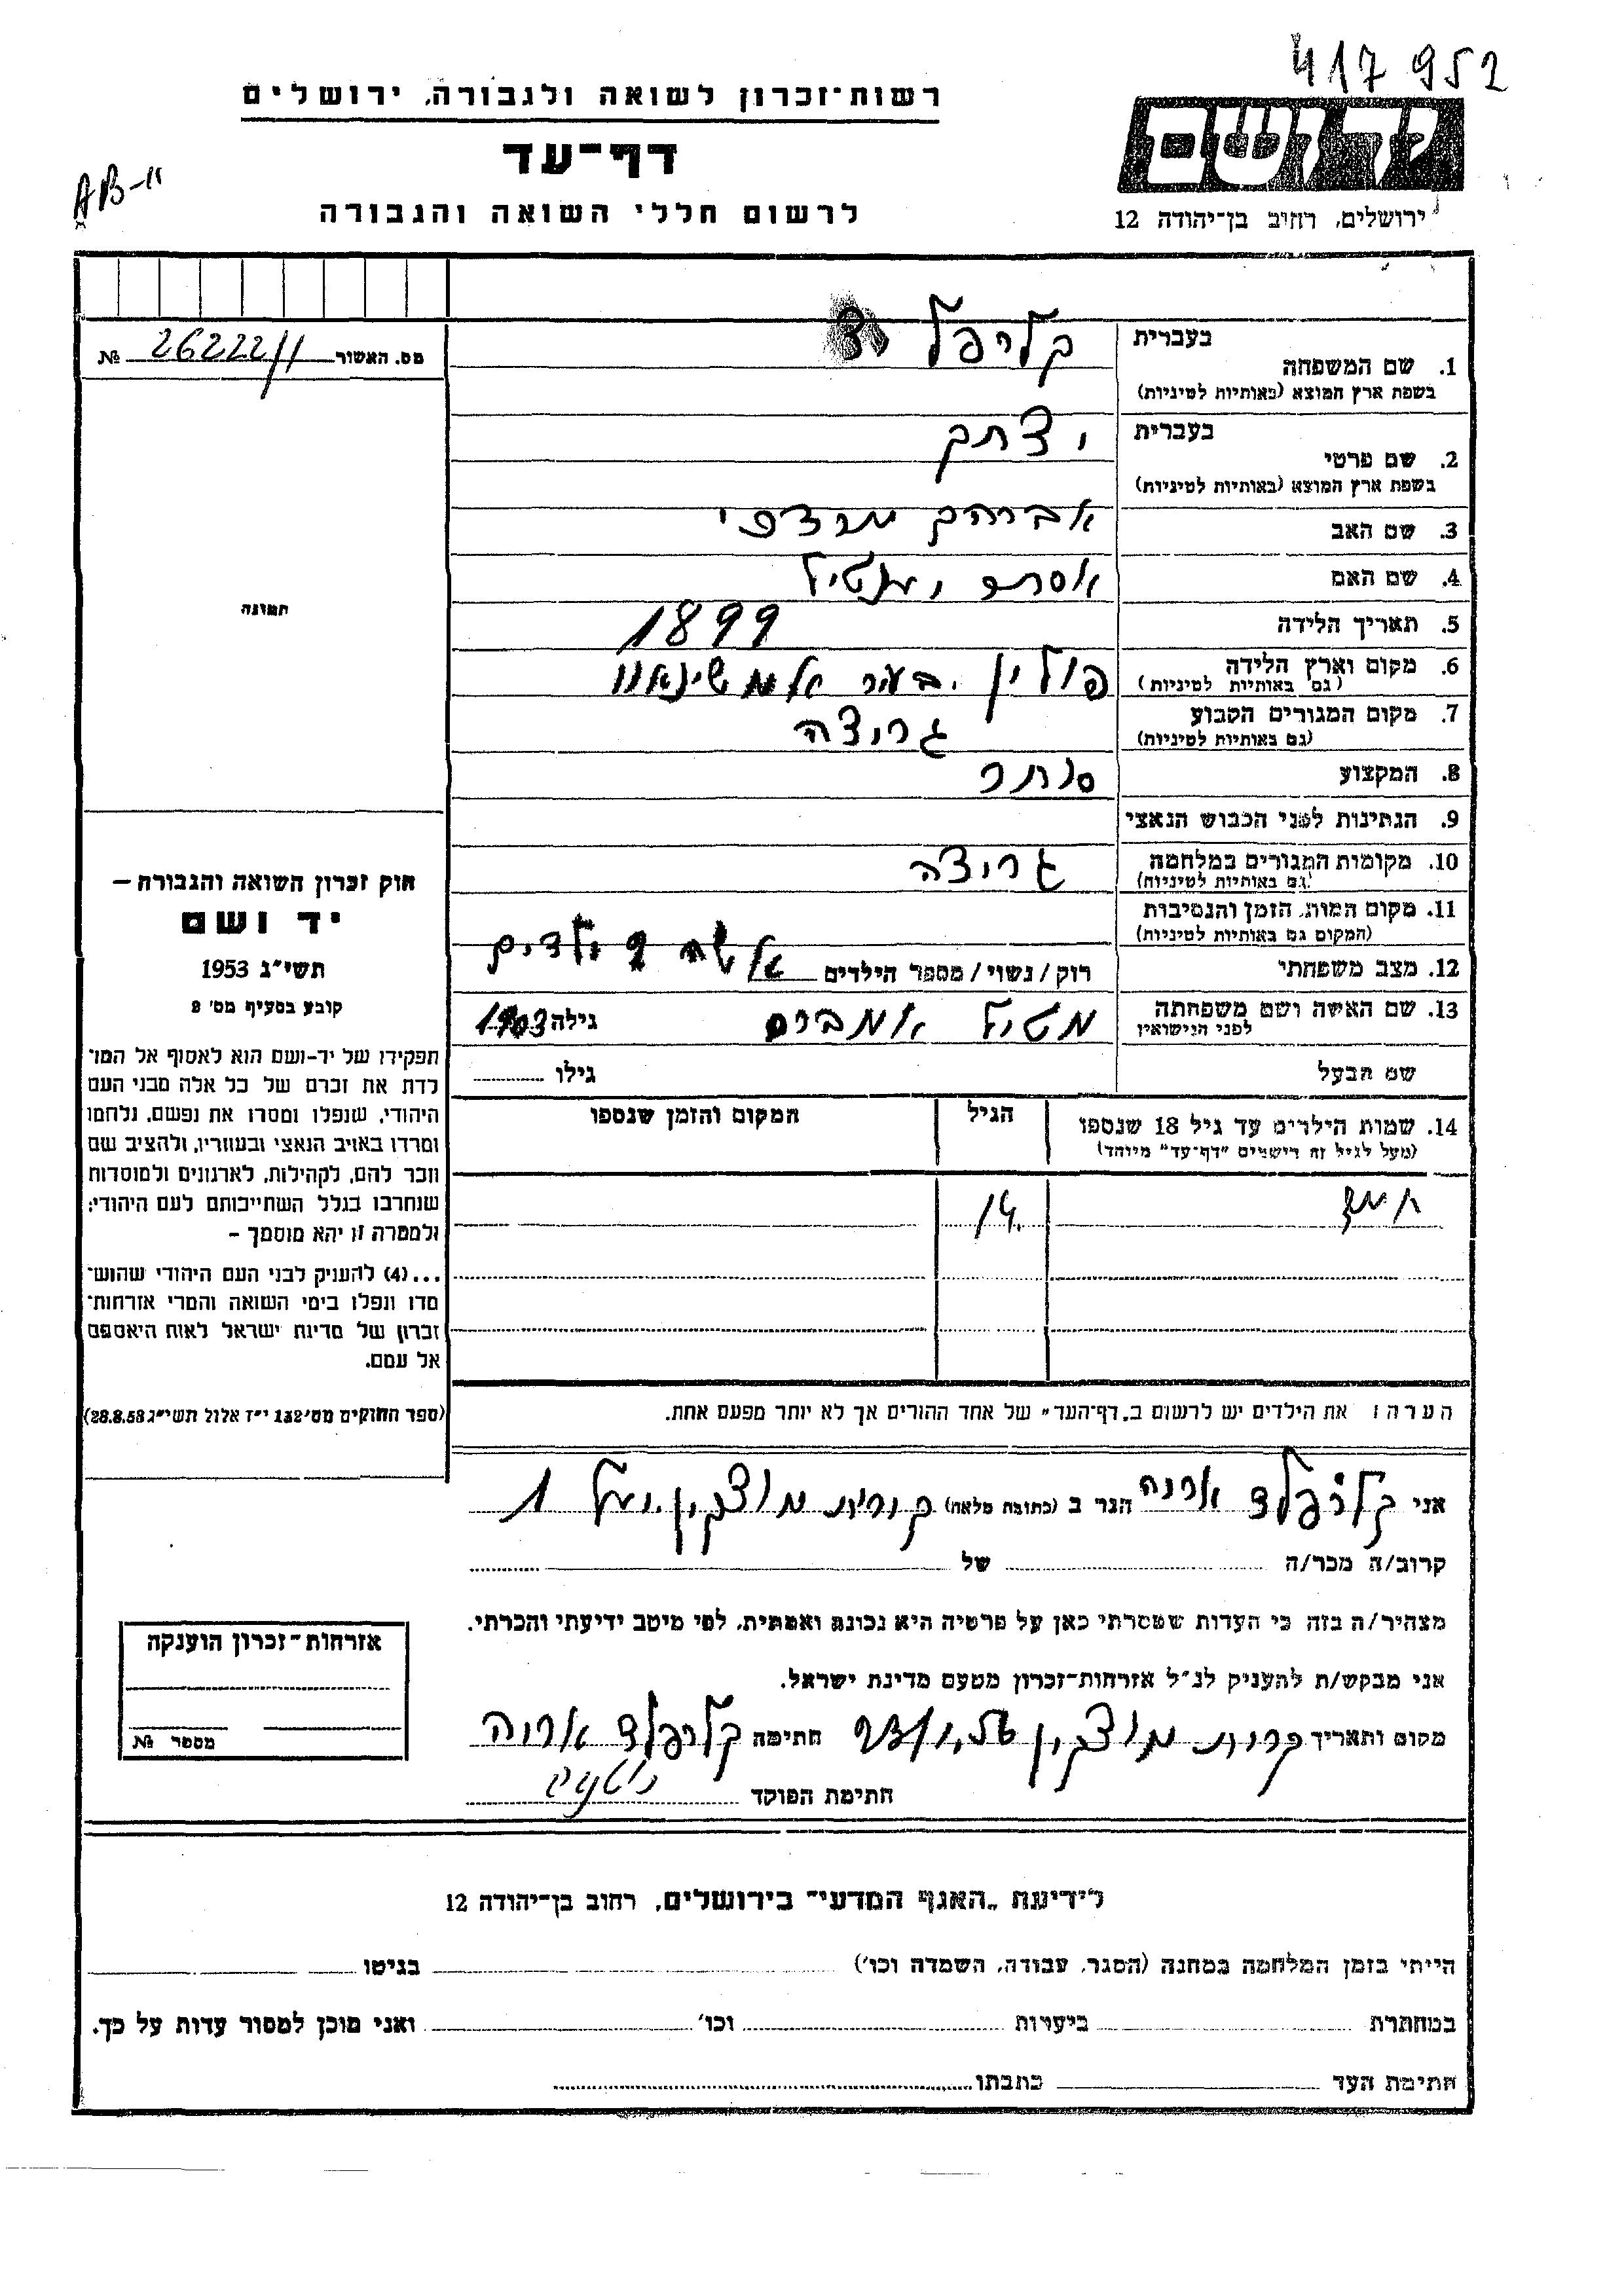 417952
רשות־זכרון לשואה ולגבורה, ירושלים
דף־עד
לרשום חללי השואה והגבורה
AB-11
יד ושם
ירושלים, רחוב בן־יהודה 12
מס. האשור 26222/1 №
1. שם המשפחה בעברית
בשפת ארץ המוצא (באותיות לטיניות)
2. שם פרטי בעברית יצחק
בשפת ארץ המוצא (באותיות לטיניות)
3. שם האב אברהם מרדכי
4. שם האם אסתר
5. תאריך הלידה 1899
6. מקום וארץ הלידה פולין בעיר
(גם באותיות לטיניות)
7. מקום המגורים הקבוע גרויצה
(גם באותיות לטיניות)
8. המקצוע סוחר
9. הנתינות לפני הכבוש הנאצי
10. מקומות המגורים במלחמה גרויצה
(גם באותיות לטיניות)
11. מקום המות, הזמן והנסיבות
(המקום גם באותיות לטיניות)
12. מצב משפחתי רוק/נשוי/מספר הילדים אשה ילדים
13. שם האשה ושם משפחתה לפני הנישואין גילה 1903
שם הבעל גילו
14. שמות הילדים עד גיל 18 שנספו הגיל המקום והזמן שנספו
(מעל לגיל זה רושמים "דף־עד" מיוחד)
14
הערה: את הילדים יש לרשום ב„דף־העד" של אחד ההורים אך לא יותר מפעם אחת.
תמונה
חוק זכרון השואה והגבורה —
יד ושם
תשי"ג 1953
קובע בסעיף מס' 2
תפקידו של יד־ושם הוא לאסוף אל המו־
לדת את זכרם של כל אלה מבני העם
היהודי, שנפלו ומסרו את נפשם, נלחמו
ומרדו באויב הנאצי ובעוזריו, ולהציב שם
וזכר להם, לקהילות, לארגונים ולמוסדות
שנחרבו בגלל השתייכותם לעם היהודי;
ולמטרה זו יהא מוסמך —
...(4) להעניק לבני העם היהודי שהוש־
מדו ונפלו בימי השואה והמרי אזרחות־
זכרון של מדינת ישראל לאות היאספם
אל עמם.
(ספר החוקים מס' 132 י"ז אלול תשי"ג 28.8.53)
אני קלרפלד אריה הגר ב (כתובת מלאה) קרית מוצקין 1
קרוב/ה מכר/ה של
מצהיר/ה בזה כי העדות שמסרתי כאן על פרטיה היא נכונה ואמתית, לפי מיטב ידיעתי והכרתי.
אני מבקש/ת להעניק לנ"ל אזרחות־זכרון מטעם מדינת ישראל.
מקום ותאריך קרית מוצקין חתימה קלרפלד אריה
חתימת הפוקד
אזרחות־זכרון הוענקה
מספר №
לידיעת „האגף המדעי" בירושלים, רחוב בן־יהודה 12
הייתי בזמן המלחמה במחנה (הסגר, עבודה, השמדה וכו') בגיטו
במחתרת ביערות וכו' ואני מוכן למסור עדות על כך.
חתימת העד כתבתו